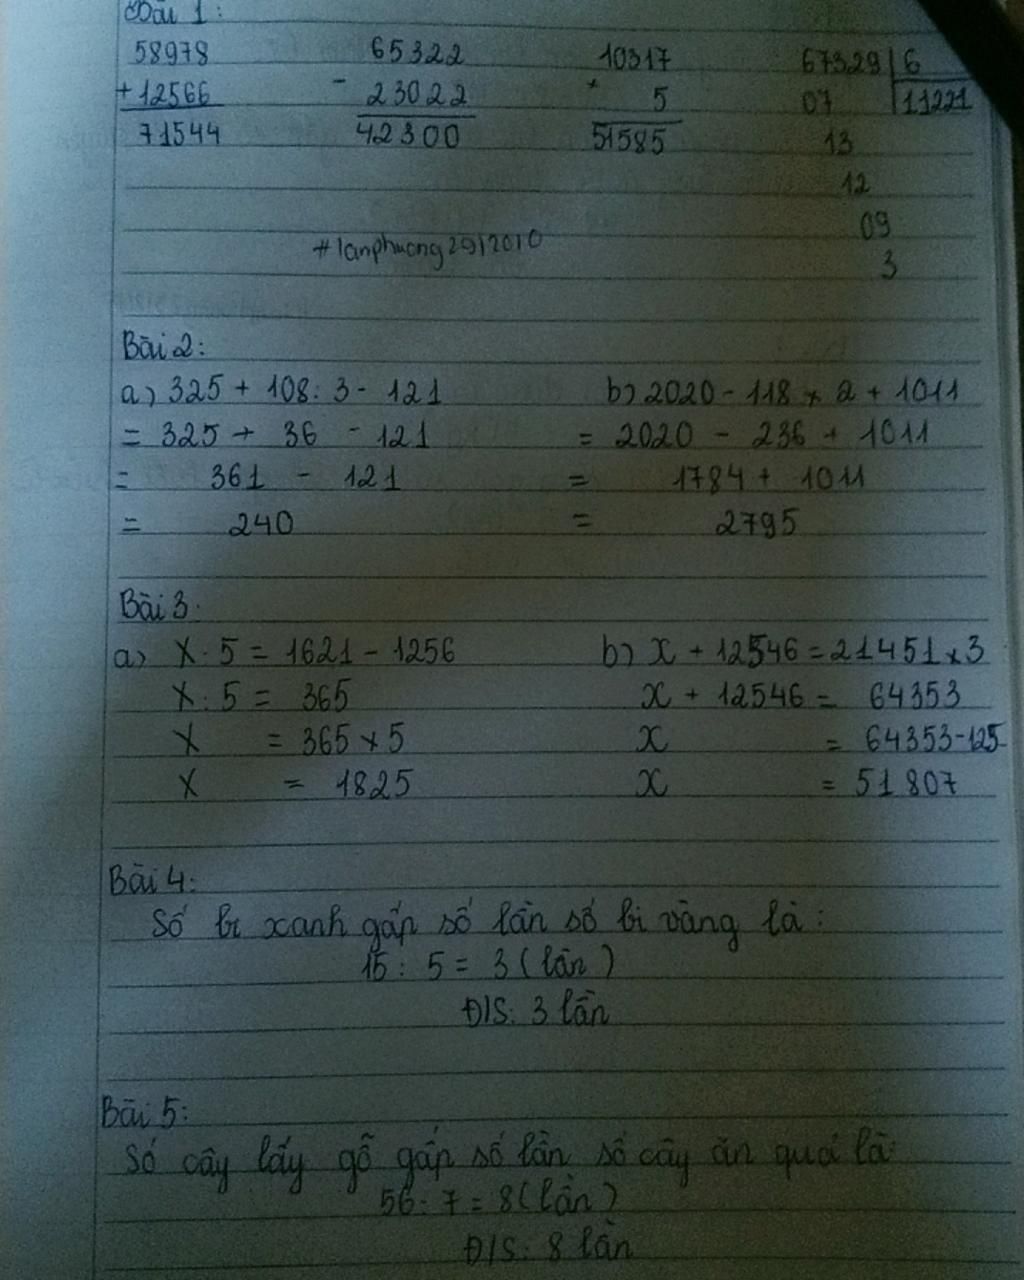 Bài 1:
58978 65322 10317 67329 6
+ 12566 - 23022 × 5 07 11221
71544 42300 51585 13
12
09
#lanphuong2912010 3
Bài 2:
a) 325 + 108 : 3 - 121 b) 2020 - 118 × 2 + 1011
= 325 + 36 - 121 = 2020 - 236 + 1011
= 361 - 121 = 1784 + 1011
= 240 = 2795
Bài 3:
a) x : 5 = 1621 - 1256 b) x + 12546 = 21451 × 3
x : 5 = 365 x + 12546 = 64353
x = 365 × 5 x = 64353 - 125
x = 1825 x = 51807
Bài 4:
Số bi xanh gấp số lần số bi vàng là :
15 : 5 = 3 (lần)
Đ/S: 3 lần
Bài 5:
Số cây lấy gỗ gấp số lần số cây ăn quả là:
56 : 7 = 8 (lần)
Đ/S: 8 lần